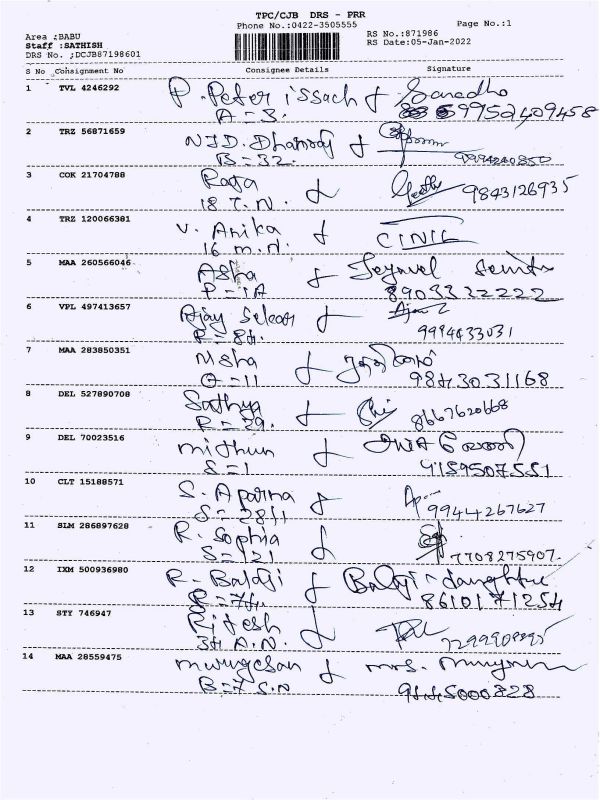 TPC/CJB DRS - PRR
Phone No.:0422-3505555
Page No.:1
Area ;BABU
Staff :SATHISH
DRS No. ;DCJB87198601
RS No.:871986
RS Date:05-Jan-2022
S No Consignment No Consignee Details Signature
1 TVL 4246292 P. Peter issach
A = 3. 9952409458
2 TRZ 56871659 N.I.D. Dhanraj
B = 32. 9994240850
3 COK 21704788 Raja
18 T.N. 9843126935
4 TRZ 120066381 V. Anika
16 m.n.
5 MAA 260566046 Asha
P = 1A 8903322222
6 VPL 497413657 Ajay Sekar
R = 84. 9994433031
7 MAA 283850351 Nisha
O = 11 9843031168
8 DEL 527890708 Sathya
R = 29. 8667620668
9 DEL 70023516 mithun
S = 1
10 CLT 15188571 S. Aparna
9944267627
11 SLM 286897628 R. Sophia
S = 121 7708275907.
12 IXM 500936980 R. Balaji Balaji - daughter
R = 74. 8610171254
13 STY 746947 Ritesh
34 A.N.
14 MAA 28559475 murugesan mrs.
B = 7 S.N 9445000328